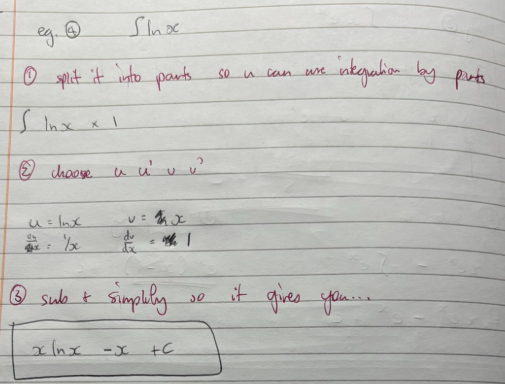 eg. ④ ∫ln x
① split it into parts so u can use integration by parts
∫ ln x × 1
② choose u u' v v'
u = ln x v = x
du/dx = 1/x dv/dx = 1
③ sub + simplify so it gives you...
x ln x - x + c